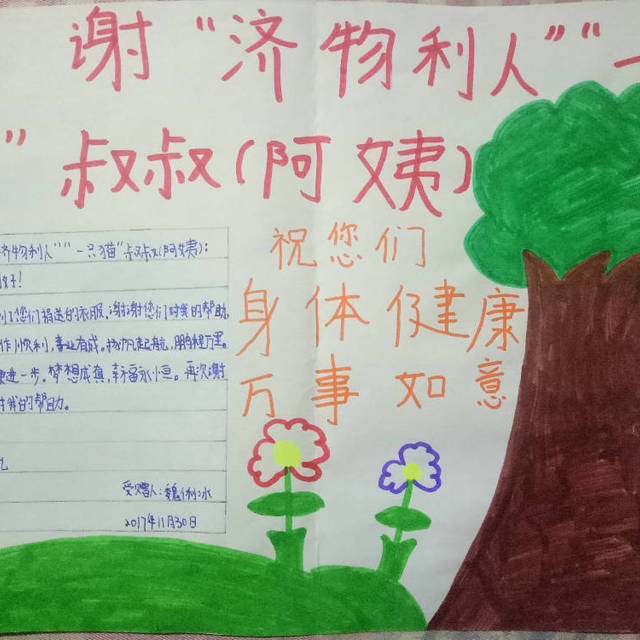 谢“济物利人”“一
”叔叔(阿姨)
济物利人”“一只猫”叔叔(阿姨):
好!
到了您们捐送的衣服,谢谢您们对我的帮助
作顺利,事业有成,扬帆起航,鹏程万里。
更进一步。梦想成真,幸福永恒。再次谢
对我的帮助。
礼
受赠人:魏俐冰
2017年11月30日
祝您们
身体健康
万事如意